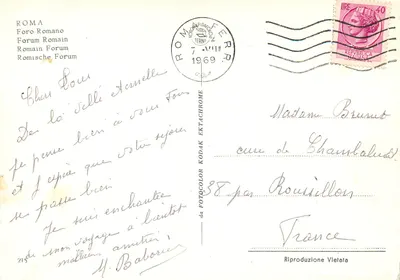 ROMA
Foro Romano
Forum Romain
Romain Forum
Römische Forum
Chers tous
De la ville éternelle
je pense bien à vous tous
et j'espère que votre séjour
se passe bien
Je suis enchantée
de mon voyage à bientôt
meilleures amitiés
M. Baborier
da FOTOCOLOR KODAK EKTACHROME
ROMA FERR
7 VIII
1969
40
Madame Brunet
cure de Chambalud
38 par Roussillon
France
Riproduzione Vietata